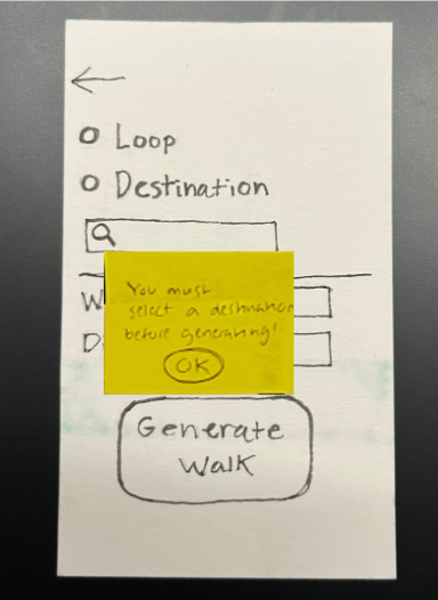 Loop
Destination
W
D
You must
select a destination
before generating!
OK
Generate
Walk